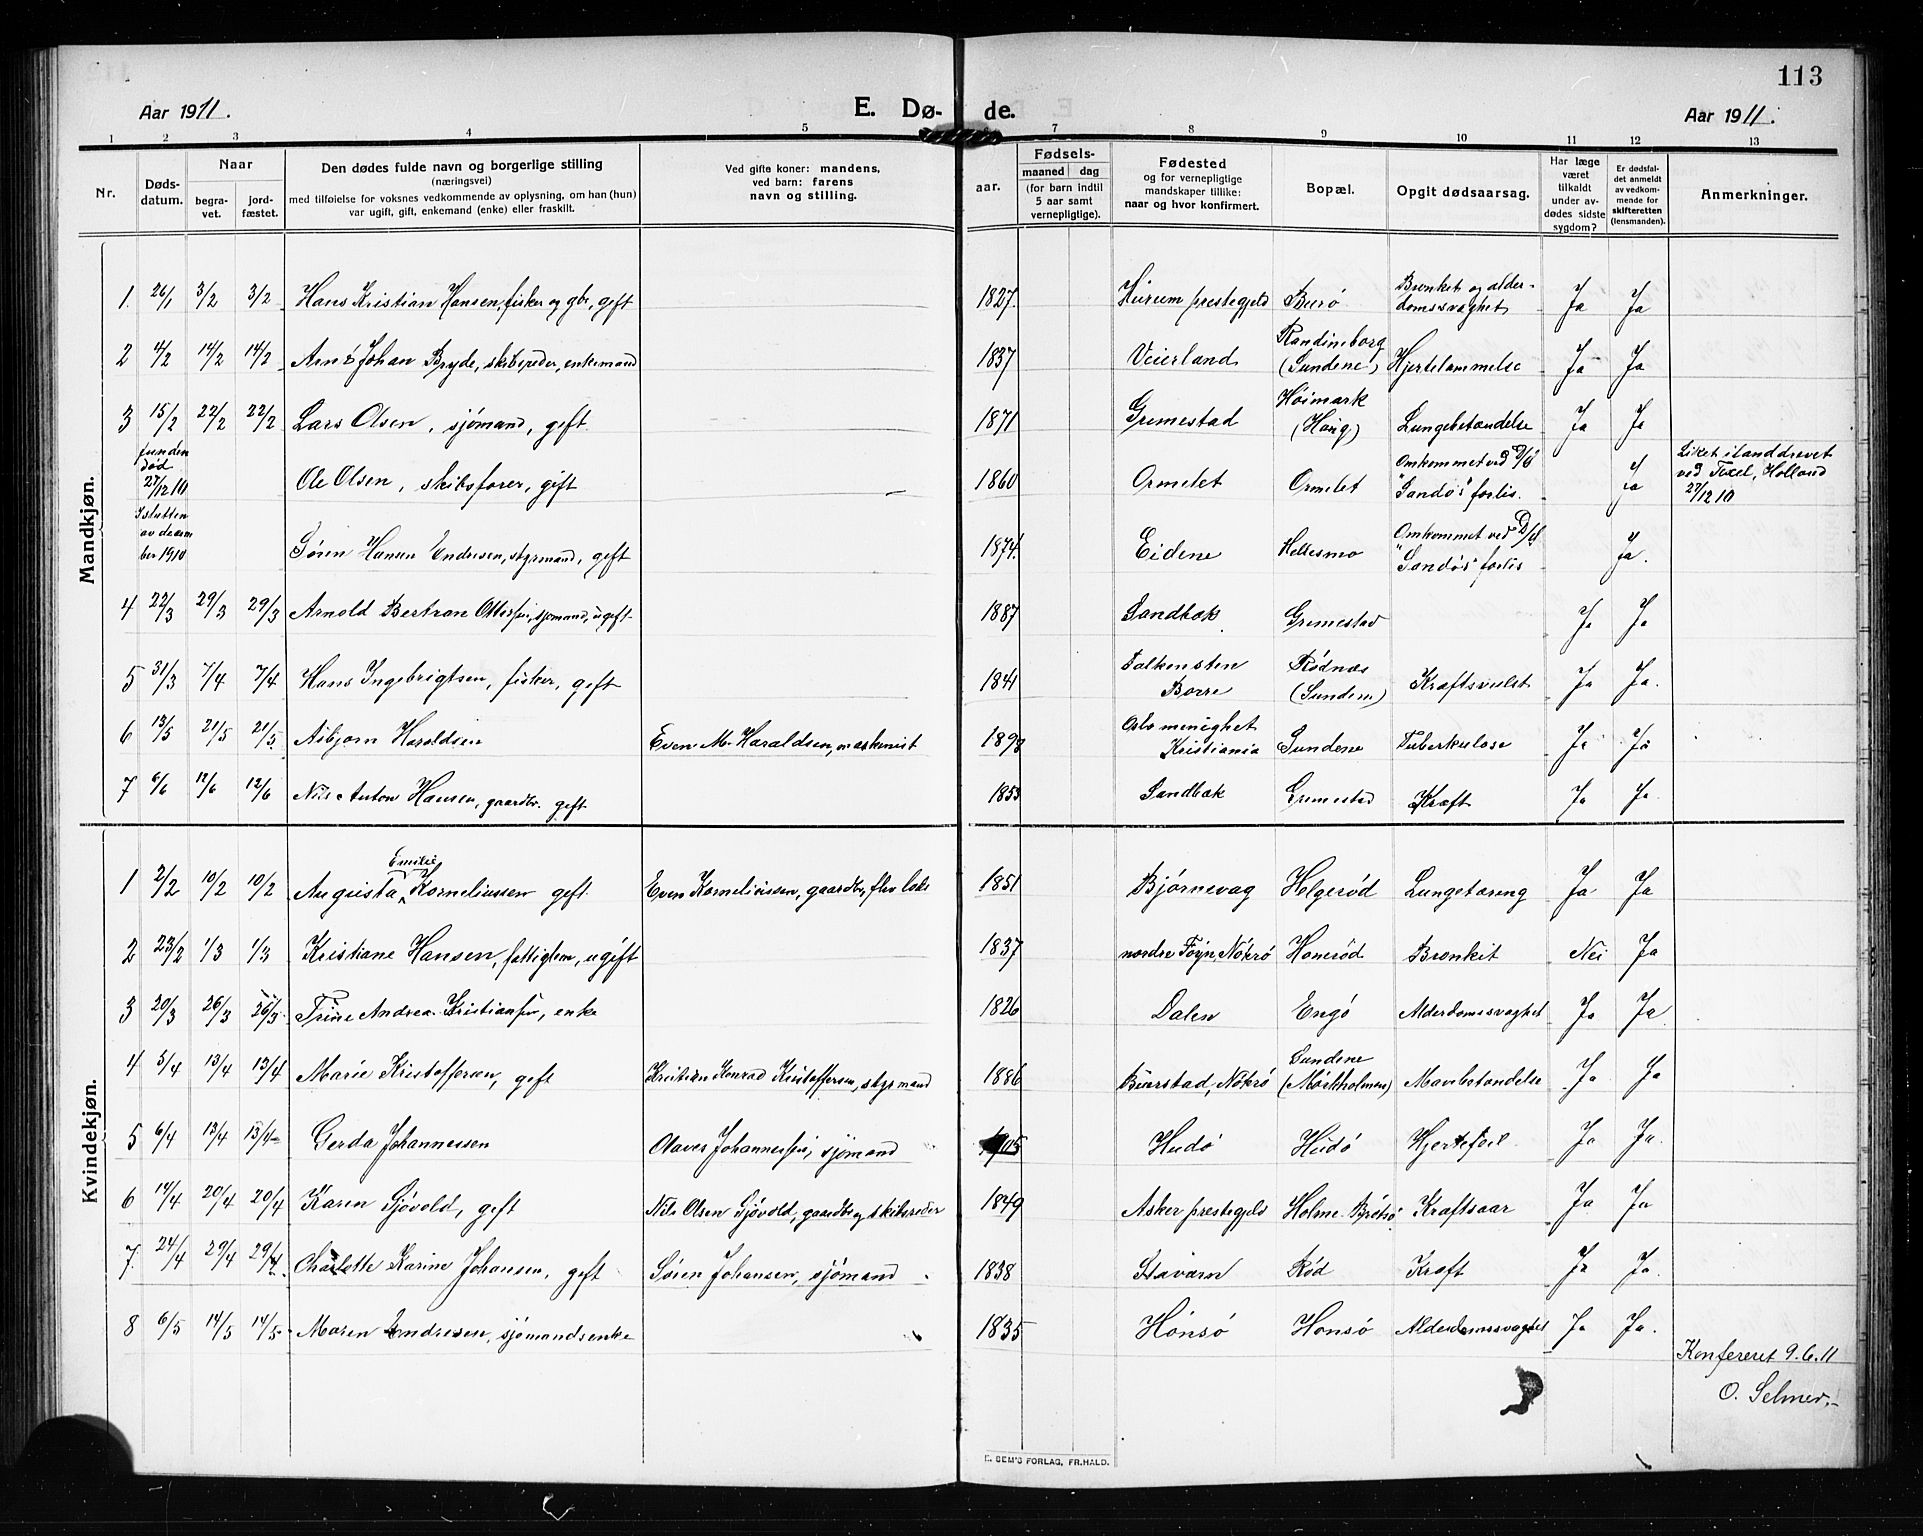 113
Aar 1911.
E. Dø- de.
Aar 1911.
1 2 3 4 5 7 8 9 10 11 12 13
Nr.
Døds-
datum.
Naar
begra-
vet.
jord-
fæstet.
Den dødes fulde navn og borgerlige stilling
(næringsvei)
med tilføielse for voksnes vedkommende av oplysning, om han (hun)
var ugift, gift, enkemand (enke) eller fraskilt.
Ved gifte koner: mandens,
ved barn: farens
navn og stilling.
aar.
Fødsels-
maaned dag
(for børn indtil
5 aar samt
vernepligtige).
Fødested
og for vernepligtige
mandskaper tillike:
naar og hvor konfirmert.
Bopæl.
Opgit dødsaarsag.
Har læge
været
tilkaldt
under av-
dødes sidste
sygdom?
Er dødsfal-
det anmeldt
av vedkom-
mende for
skifteretten
(lensmanden).
Anmerkninger.
Mandkjøn.
1. 26/1 3/2 3/2 Hans Kristian Hansen, fisker og gbr., gift 1827. Hurum prestegjeld Buerø Bronket og alder-
domssvaghet Ja Ja
2 4/2 14/2 14/2 Arnt Johan Bryde, skibsreder, enkemand 1837 Veierland Randineborg
(Sundene) Hjertelammelse Ja Ja
3 15/2 22/2 22/2 Lars Olsen, sjømand, gift 1871 Grimestad Høimark
(Haug) Lungebetændelse Ja Ja
funden
død
27/12 10 Ole Olsen, skibsfører, gift 1860 Ormelet Ormelet Omkommet ved D/S
"Sandøs" forlis. Ja Liket ilanddrevet
ved Texel, Holland
27/12 10
I slutten
av decem
ber 1910 Søren Hansen Endresen, styrmand, gift 1874. Eidene Hellesmo Omkommet ved D/S
"Sandøs" forlis Ja.
4 22/3 29/3 29/3 Arnold Bertran Ottersen, sjømand, ugift 1887 Sandbæk Grimestad Ja Ja
5 31/3 7/4 7/4 Hans Ingebrigtsen, fisker, gift 1841 Falkensten
Borre Rødnæs
(Sundene) Kræftsvulst Ja Ja.
6 13/5 21/5 21/5 Asbjørn Haraldsen Even M. Haraldsen, maskinist 1898 Oslo menighet
Kristiania Sundene Tuberkulose Ja Ja
7 6/6 12/6 12/6 Nils Anton Hansen, gaardbr. gift 1855 Sandbæk Grimestad Kræft Ja Ja.
Kvindekjøn.
1 2/2 10/2 10/2 Augusta Emilie Korneliussen gift Even Korneliussen, gaardbr, flev lods 1851 Bjørnevaag Helgerød Lungetæring Ja Ja
2 23/2 1/3 1/3 Kristiane Hansen, fattiglem, ugift 1837 nordre Føyn, Nøtrø Honerød Bronkit Nei Ja
3 20/3 26/3 26/3 Trine Andrea Kristiansen, enke 1826 Dalen Engø Alderdomssvaghet Ja Ja.
4 5/4 13/4 13/4 Marie Kristoffersen, gift Kristian Konrad Kristoffersen, styrmand 1886 Buerstad, Nøtrø Sundene
(Mørkholmen) Mavebetændelse Ja Ja
5 6/4 13/4 13/4 Gerda Johannessen Olaves Johannessen, sjømand 1905 Hudø Hudø Hjertefeil. Ja Ja.
6 14/4 20/4 20/4 Karen Sjøvold, gift Nils Olsen Sjøvold, gaardbr og skibsreder 1849 Asker prestegjeld Holme Brøtsø Kræftsaar Ja Ja
7. 24/4 29/4 29/4 Charlotte Karine Johansen, gift Søren Johansen, sjømand 1838 Staværn Rød Kræft Ja Ja.
8 6/5 14/5 14/5 Maren Andresen, sjømandsenke 1835 Hønsø Hønsø Alderdomssvaghet Ja Ja.
Konfereret 9.6.11
O. Selmer.
E. SEM'S FORLAG, FR.HALD.